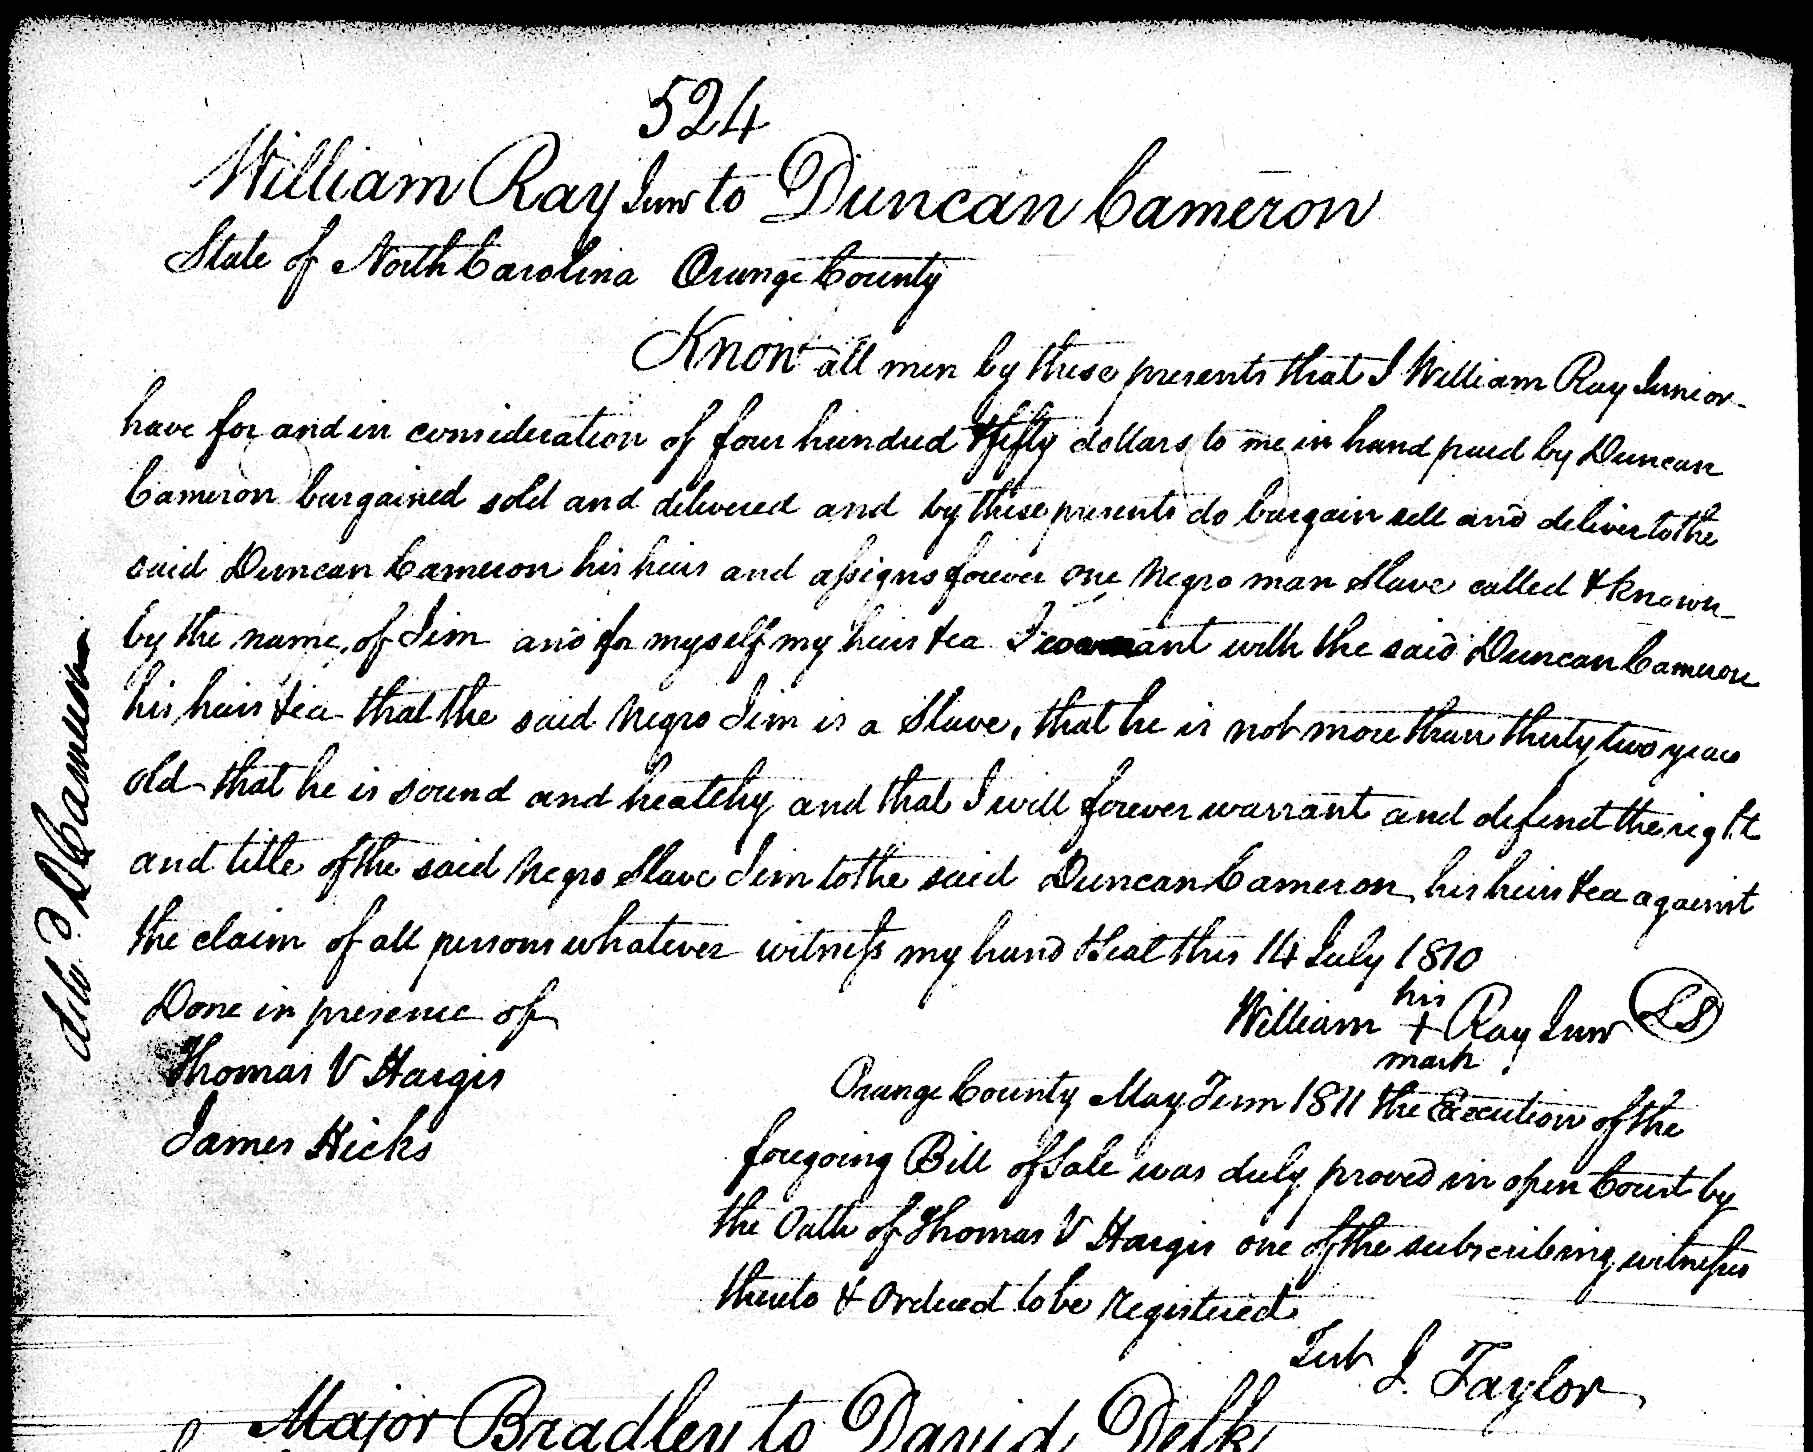 524
William Ray Junr to Duncan Cameron
State of North Carolina Orange County
Know all men by these presents that I William Ray Junior
have for and in consideration of four hundred & fifty dollars to me in hand paid by Duncan
Cameron bargained sold and delivered and by these presents do bargain sell and deliver to the
said Duncan Cameron his heirs and assigns forever one Negro man Slave called & known
by the name of Jim and for myself my heirs &ca I warrant with the said Duncan Cameron
his heirs &ca that the said Negro Jim is a Slave, that he is not more than thirty two years
old that he is sound and heatehy and that I will forever warrant and defend the right
and title of the said Negro Slave Jim to the said Duncan Cameron his heirs &ca against
the claim of all persons whatever witness my hand & Seal this 14 July 1810
Done in presence of
Thomas V Hargis
James Hicks
his
William + Ray Junr LS
mark
Orange County May Term 1811 the Execution of the
foregoing Bill of Sale was duly proved in open Court by
the Oath of Thomas V Hargis one of the subscribing witnesses
thereto & Ordered to be Registered
Test J. Taylor
deld D Cameron
Major Bradley to David Delk